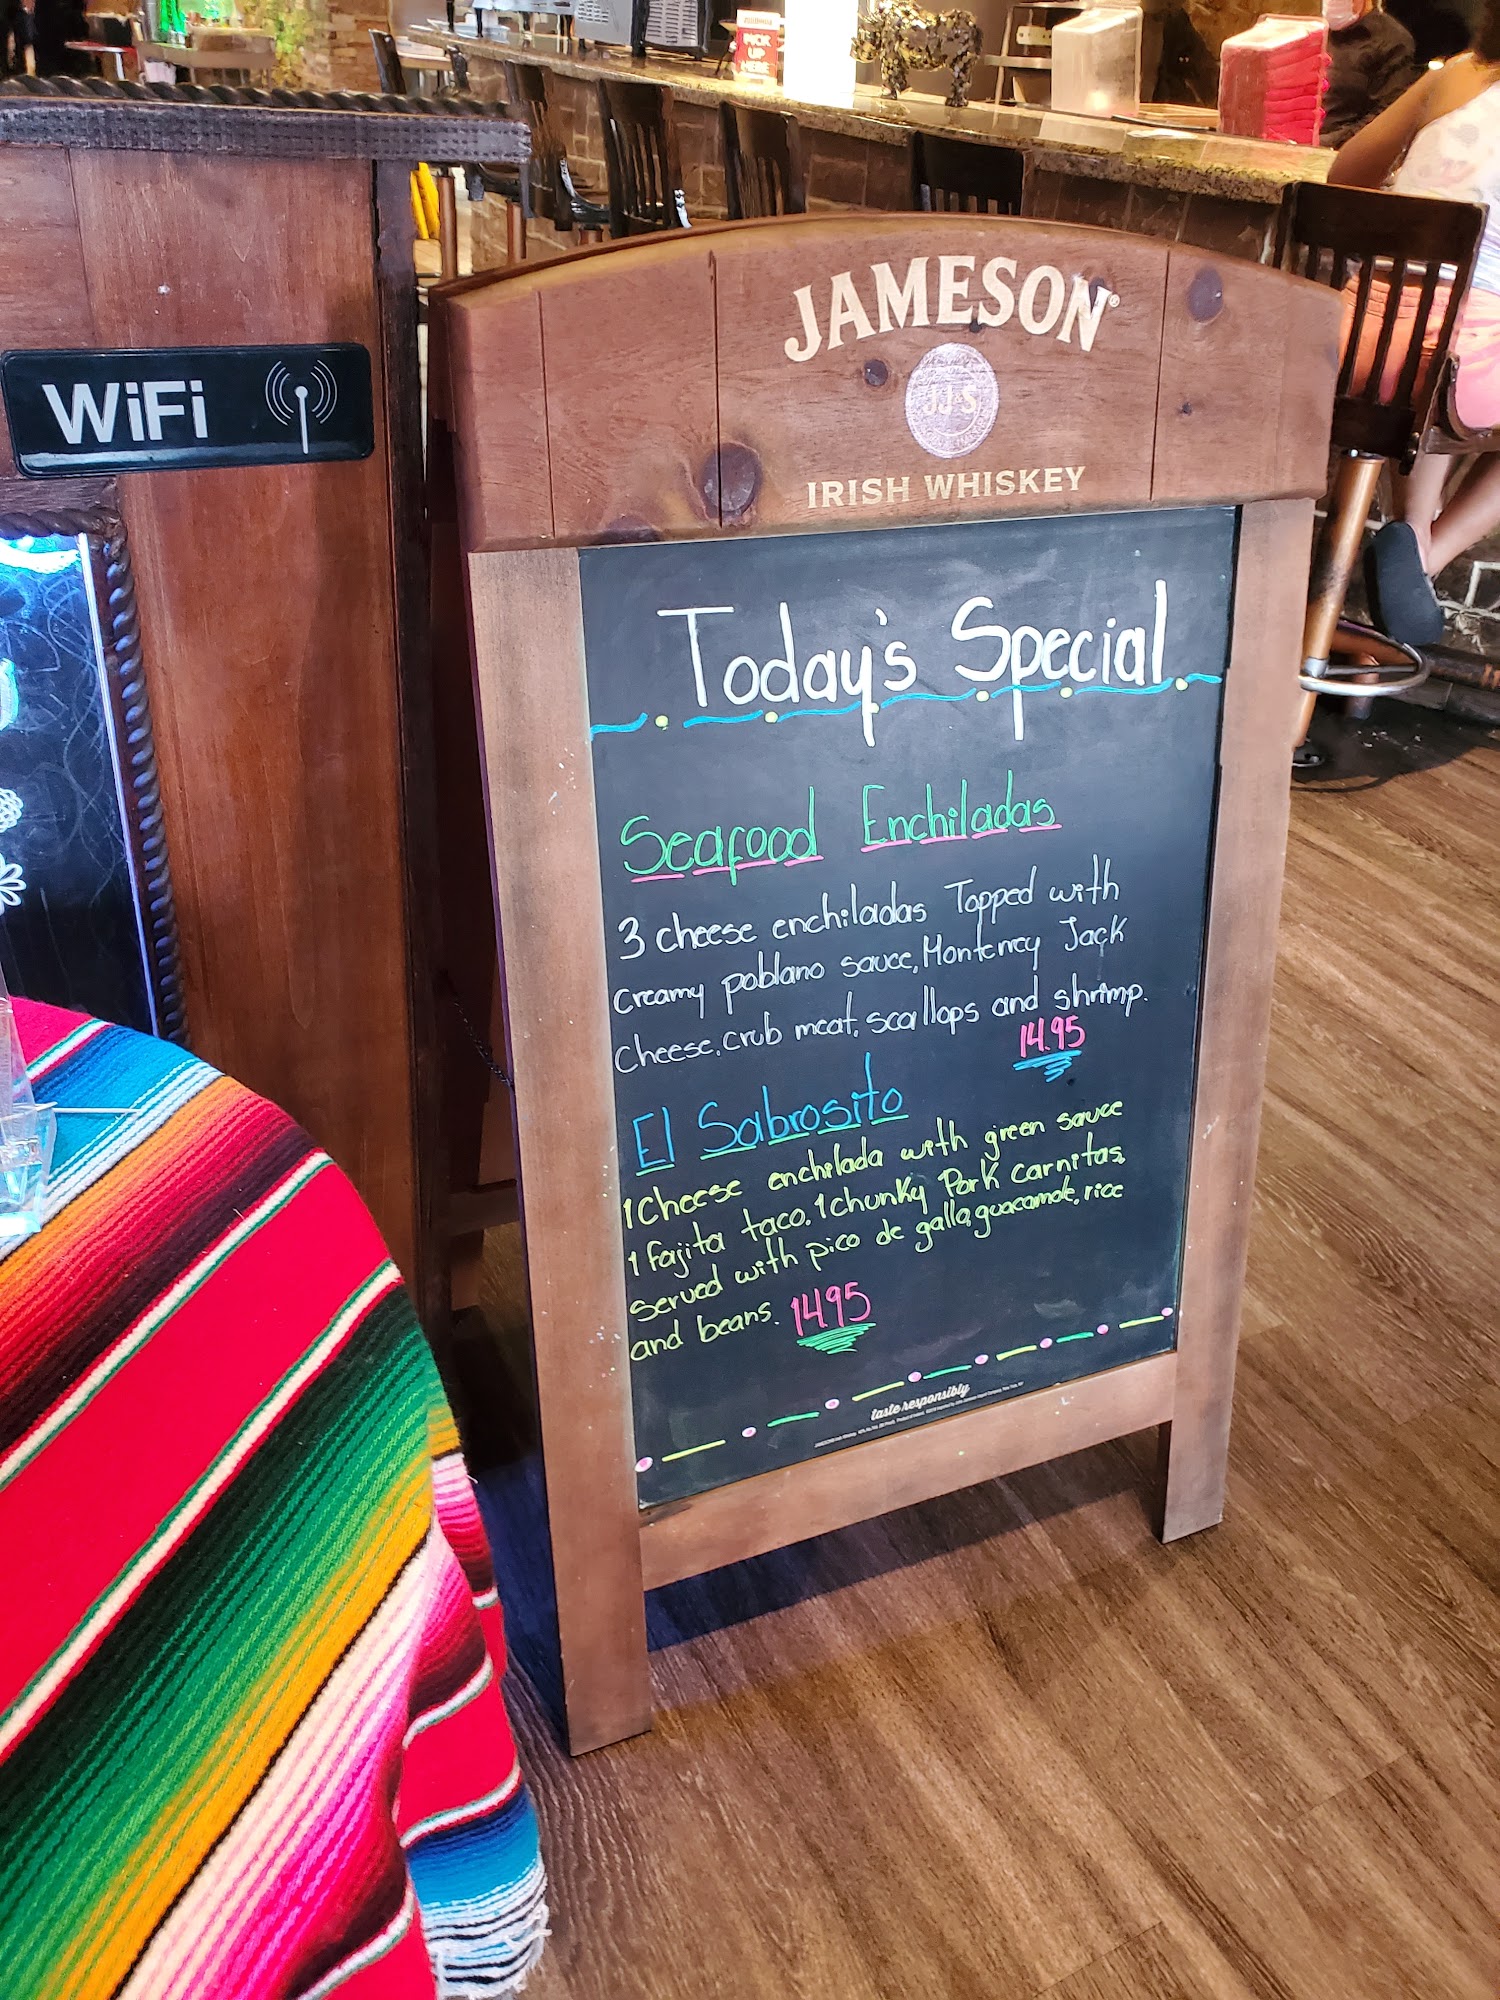 PICK
UP
HERE
WiFi
JAMESON®
JJ&S
IRISH WHISKEY
Today's Special
Seafood Enchiladas
3 cheese enchiladas Topped with
creamy poblano sauce, Monterrey Jack
cheese, crab meat, scallops and shrimp.
14.95
El Sabrosito
1 Cheese enchilada with green sauce
1 fajita taco. 1 chunky Pork carnitas,
served with pico de gallo, guacamole, rice
and beans. 14.95
taste responsibly